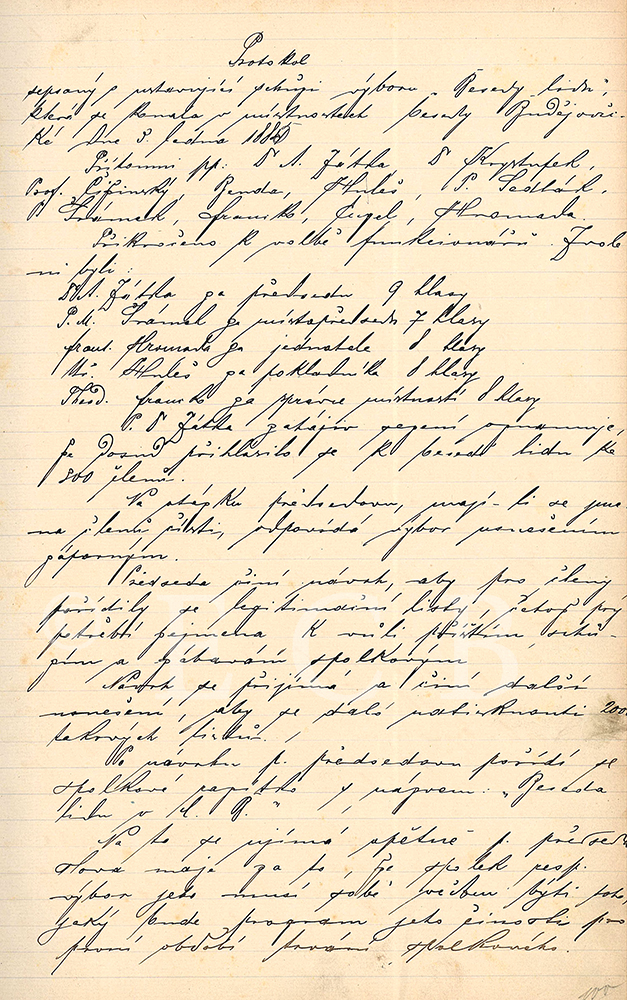 Protokol
sepsaný o ustavující schůzi výboru „Besedy lidu“,
která se konala v místnostech besedy Budějovic-
ké dne 3. ledna 1885
Přítomni pp. Dr A. Zátka, Dr Krystufek,
Prof. Čipinský, Benda, Huleš, P. Sedlák,
Šrámek, Hromada.
Přikročeno k volbě funkcionářů. Zvole
ni byli:
Dr A. Zátka za předsedu 9 hlasy
P. M. Šrámek za místopředsedu 7 hlasy
frant. Hromada za jednatele 8 hlasy
Huleš za pokladníka 8 hlasy
Theod. za správce místností 8 hlasy
P. Dr Zátka zahájiv sezení oznamuje,
že dosud přihlásilo se k besedě lidu ke
800 členů.
Na otázku předsedovu, mají-li se jmé-
na členů čísti, odpovídá výbor usnešením
záporným.
Předseda činí návrh, aby pro členy
pořídily se legitimační listy, čehož prý
potřebí zejmena k vůli příštím schů-
zím a zábavám spolkovým.
Návrh se přijímá a činí další
usnešení, aby se dalo natisknouti 200
takových lístků.
K návrhu p. předsedovu pořídí se
spolkové razítko s nápisem: „Beseda
lidu v Č. B.“
Na to se ujímá opětně p. předseda
slova maje za to, že spolek resp.
výbor jeho musí sobě vědom býti toho,
jaký bude program jeho činnosti pro
první období trvání spolkového.
100
ECB